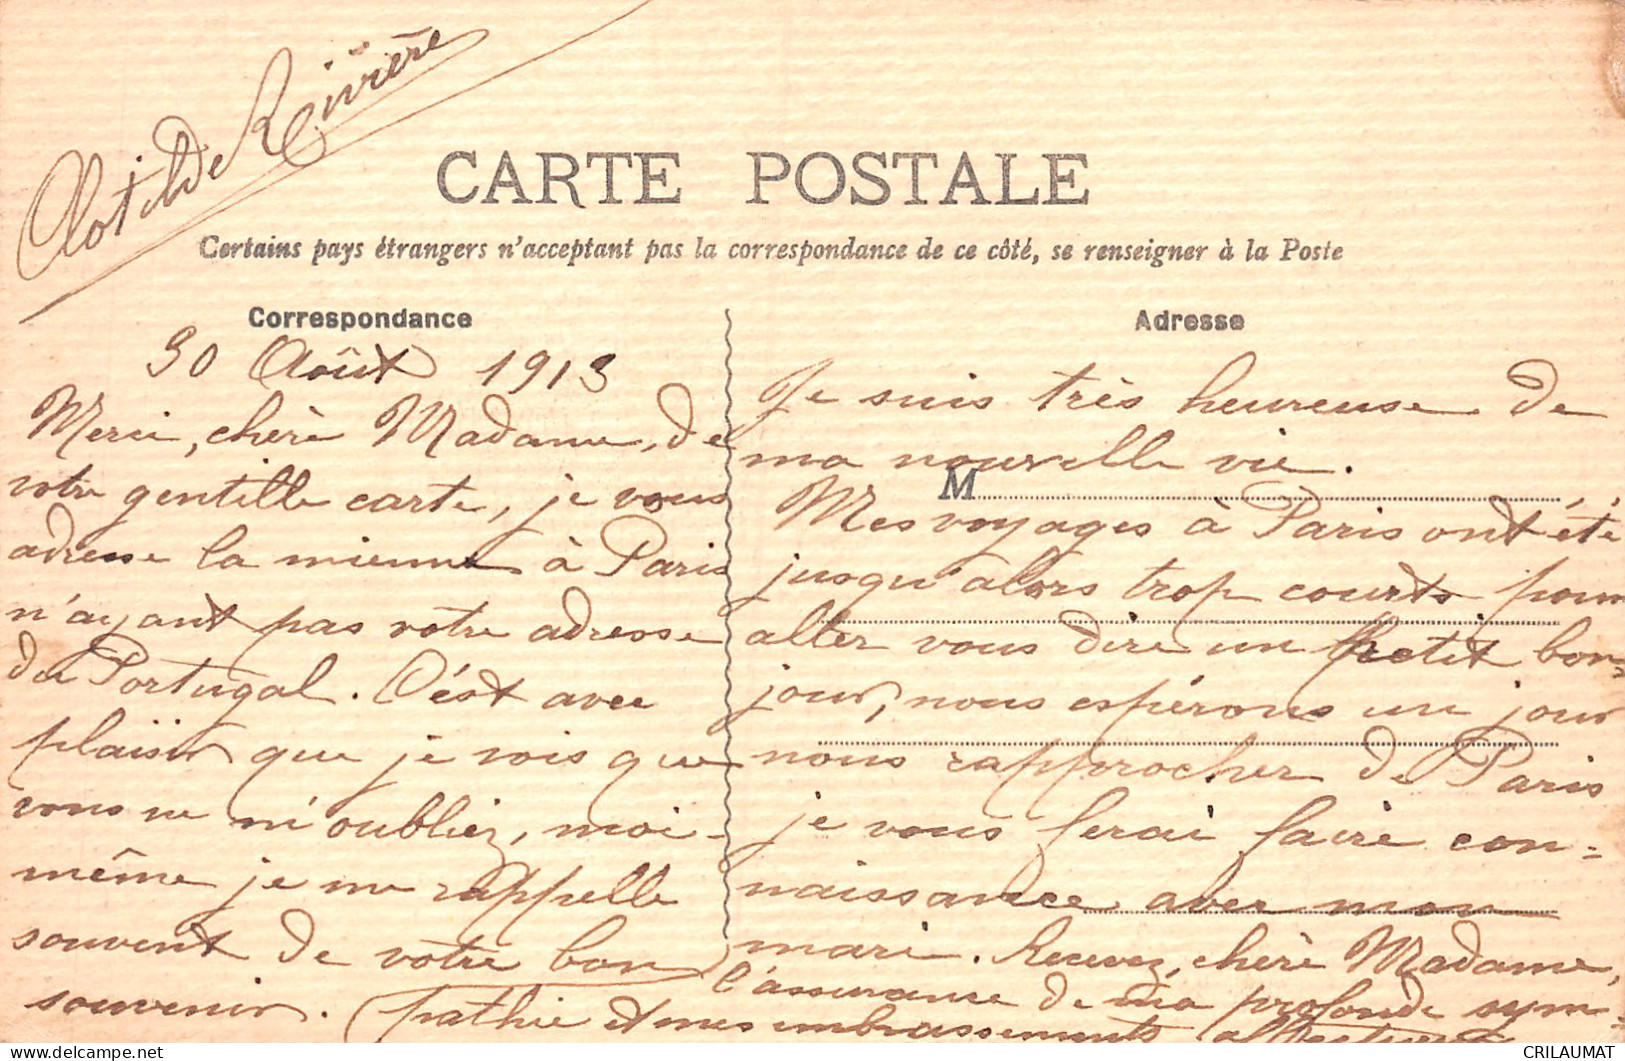 Clotilde Rivière
CARTE POSTALE
Certains pays étrangers n'acceptant pas la correspondance de ce côté, se renseigner à la Poste
Correspondance
30 Août 1913
Merci, chère Madame, de
votre gentille carte, je vous
adresse la mienne à Paris
n'ayant pas votre adresse
du Portugal. C'est avec
plaisir que je vois que
vous ne m'oubliez, moi-
même je me rappelle
souvent de votre bon
souvenir.
Adresse
Je suis très heureuse de
ma nouvelle vie.
M
Mes voyages à Paris ont été
jusqu'alors trop courts pour
aller vous dire un petit bon=
jour, nous espérons un jour
nous rapprocher de Paris
je vous ferai faire con=
naissance avec mon
mari. Recevez, chère Madame,
l'assurance de ma profonde sym=
pathie et mes embrassements affectueux
CRILAUMAT